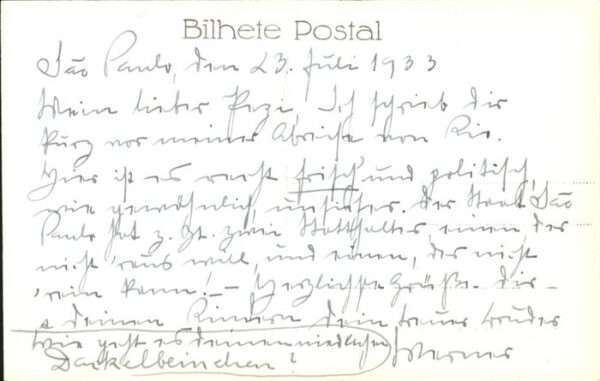 Bilhete Postal
São Paulo, den 23. Juli 1933
Mein lieber Pezi, Ich schrieb dir
kurz vor meiner Abreise von Rio.
Hier ist es recht frisch und politisch,
wie gewöhnlich, unsicher. Der Staat São
Paulo hat z. Zt. zwei Statthalter, einen der
nicht 'raus will, und einen, der nicht
'rein kann! – Herzlichste Grüße dir
& deinen Kindern dein treuer Bruder
Wie geht es deinen niedlichen Werner
Dackelbeinchen?